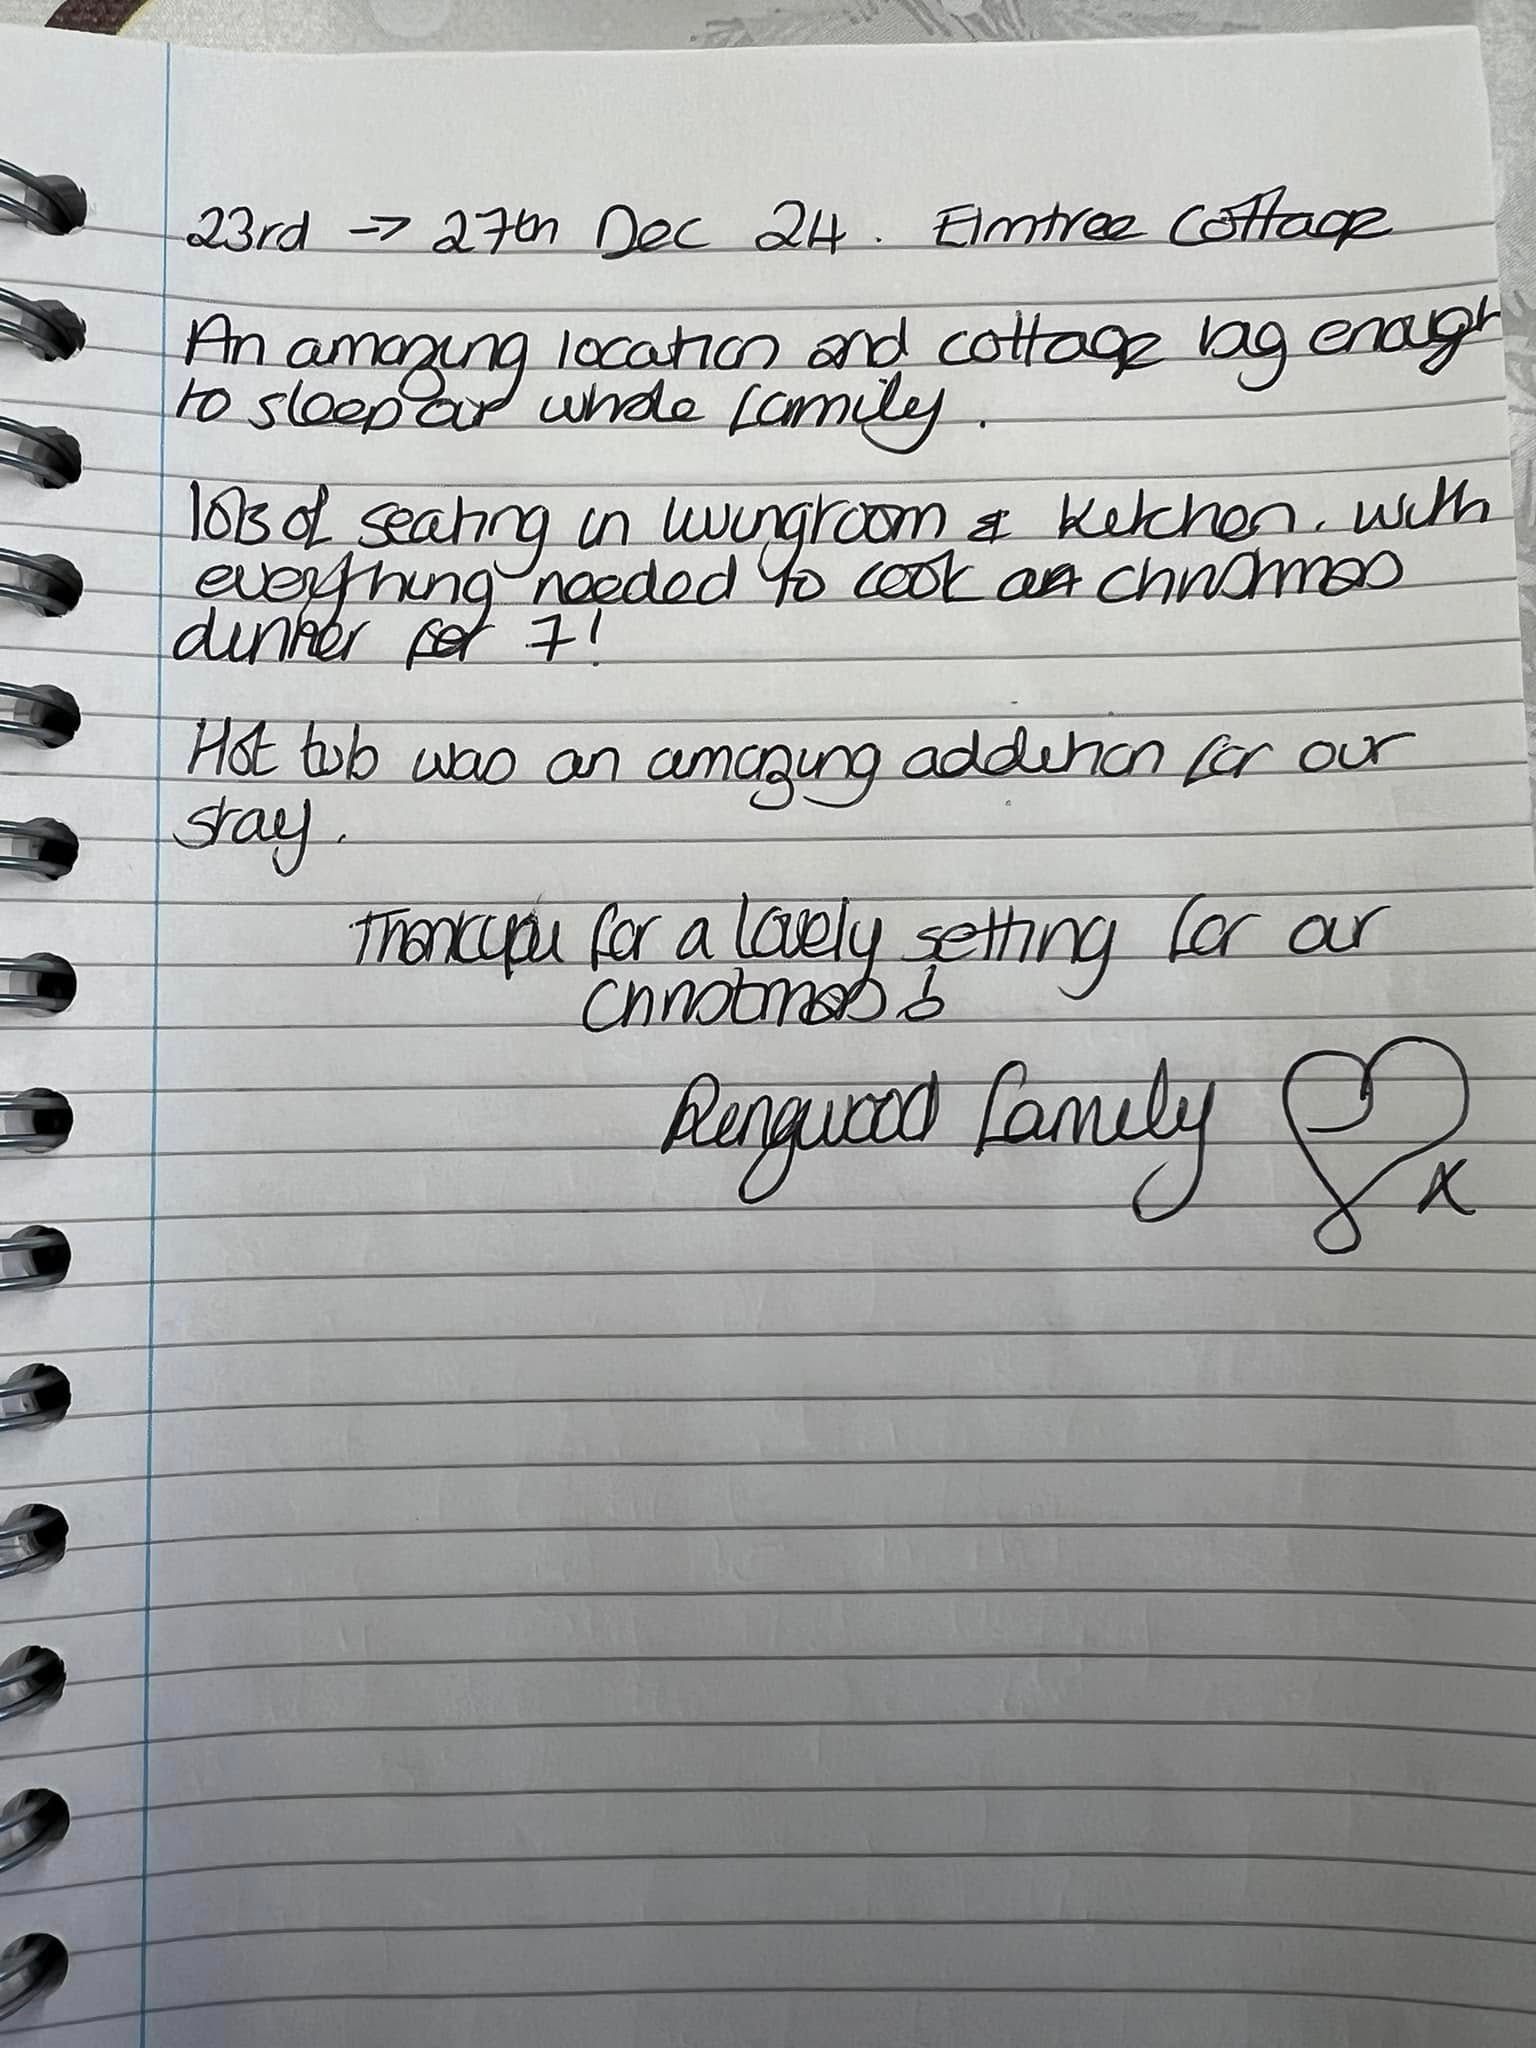 23rd → 27th Dec 24. Elmtree Cottage
An amazing location and cottage big enough
to sleep our whole family.
lots of seating in livingroom & kitchen. with
everything needed to cook a christmas
dinner for 7!
Hot tub was an amazing addition for our
stay.
Thankyou for a lovely setting for our
Christmas!
Ringwood family
x